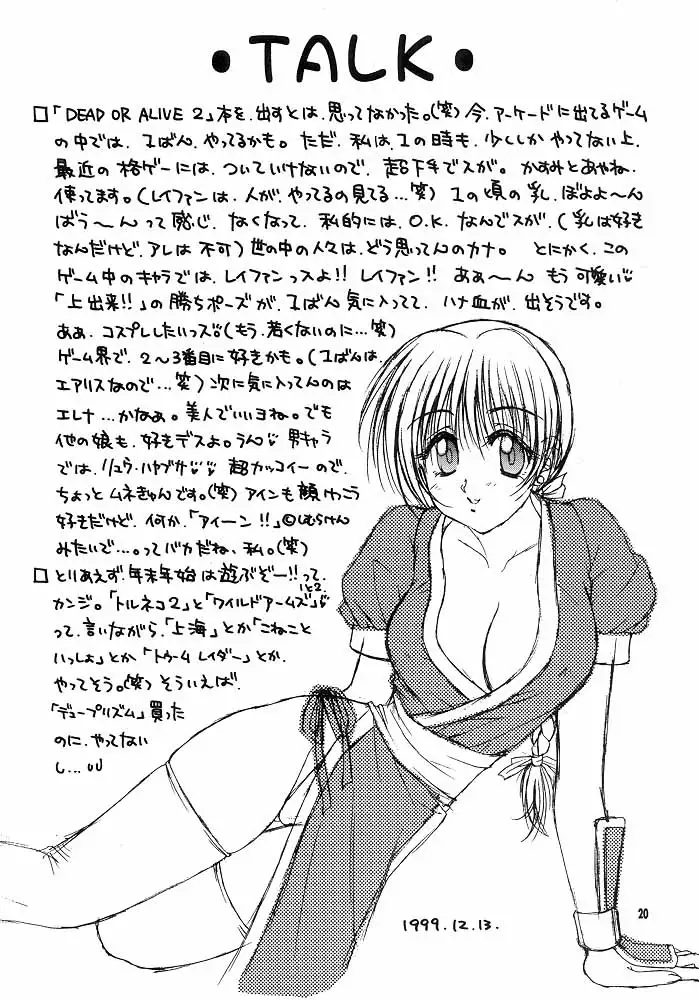 •TALK•
□「DEAD OR ALIVE 2」本を、出すとは、思ってなかった。(笑)今、アーケードに出てるゲーム
の中では、1ばん、やってるかも。ただ、私は、1の時も、少ししか やってない上、
最近の格ゲーには、ついていけないので、超下手でスが。かすみとあやね、
使ってます。(レイファンは、人が、やってるの見てる...笑) 1の頃の乳、ぼよよ〜ん
ばう〜んって感じ、なくなって、私的には、O.K.なんでスが、(乳は好き
なんだけど、アレは不可)世の中の人々は、どう思ってんのカナ。とにかく、この
ゲーム中のキャラでは、レイファンっスよ!! レイファン!! ああ〜ん もう可愛い
「上出来!!」の勝ちポーズが、1ばん気に入ってて、ハナ血が、出そうです。
ああ、コスプレしたいっス。(もう、若くないのに...笑)
ゲーム界で、2〜3番目に好きかも。(1ばんは、
エアリスなので...笑)次に気に入ってんのは
エレナ...かなぁ。美人でいいヨね。でも
他の娘も、好きデスよ。うん。男キャラ
では、リュウ・ハヤブサ 超カッコイーので、
ちょっとムネきゅんです。(笑)アインも顔けっこう
好きだけど、何か、「アイーン!!」©しむらけん
みたいで...。ってバカだね、私。(笑)
□とりあえず、年末年始は遊ぶぞー!!って、
カンジ。「トルネコ2」と「ワイルドアームズ 1と2」
って、言いながら、「上海」とか「こねこと
いっしょ」とか「トゥームレイダー」とか、
やってそう。(笑)そういえば、
「デュープリズム」買った
のに、やってない
し...
1999.12.13.
20